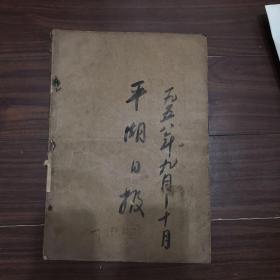 一九五八年九月-十月
平湖日报